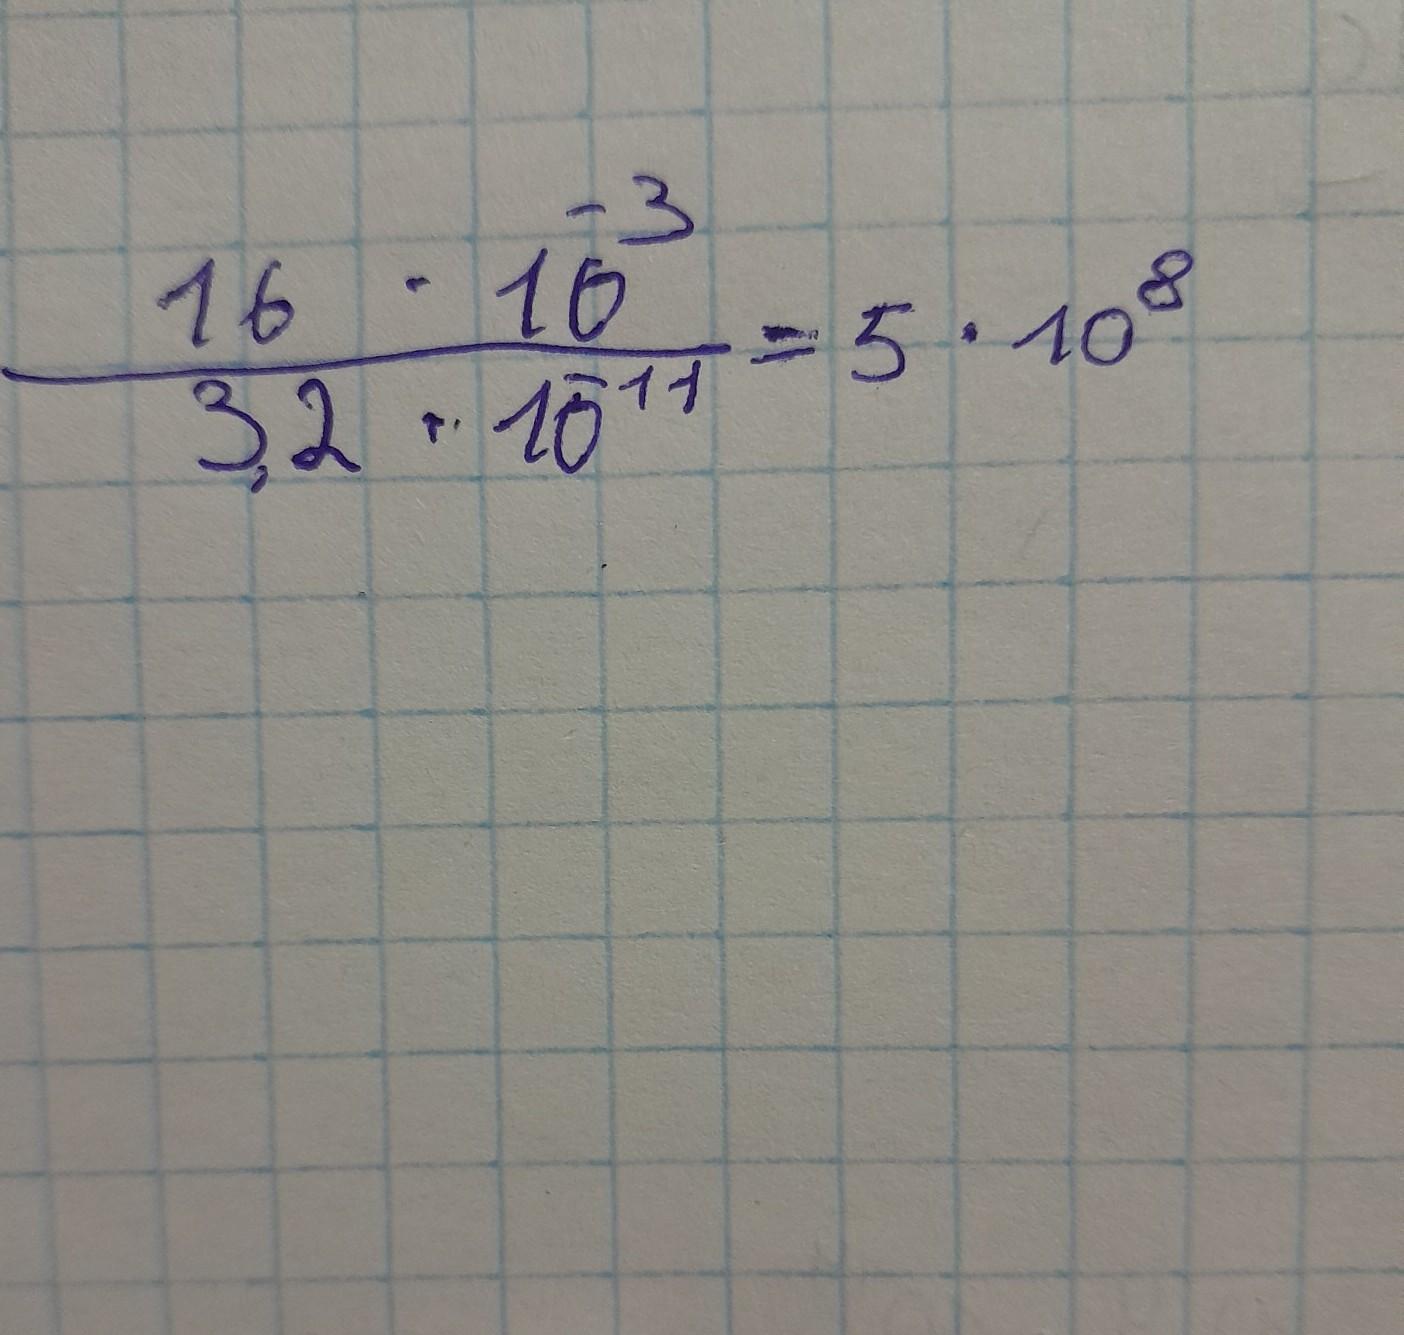 16 · 10⁻³
3,2 · 10⁻¹¹ = 5 · 10⁸